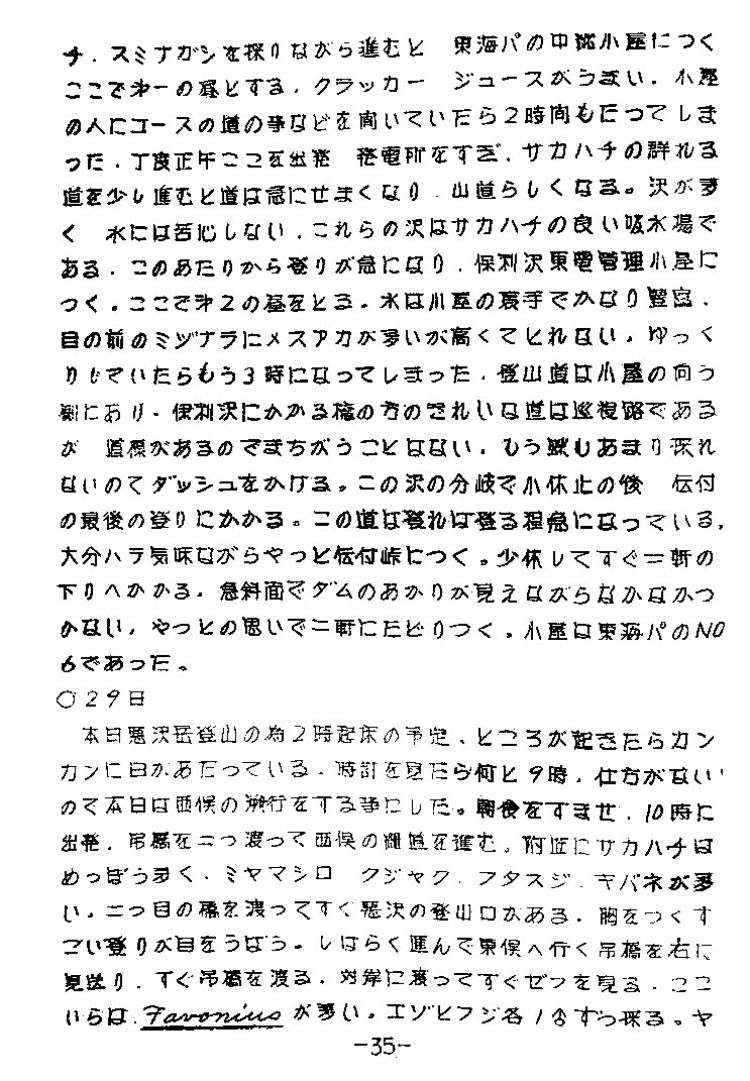 チ．スミナガシを採りながら進むと　東海パの中継小屋につく
ここで第一の昼とする．クラッカー　ジュースがうまい．小屋
の人にコースの道の事などを聞いていたら２時間もたってしま
った．丁度正午ここを出発　発電所をすぎ，サカハチの群れる
道を少し進むと道は急にせまくなり．山道らしくなる。沢が多
く　水には苦心しない．これらの沢はサカハチの良い吸水場で
ある．このあたりから登りが急になり．保利沢東電管理小屋に
つく．ここで第２の昼をとる．水は小屋の裏手でかなり豊富．
目の前のミヅナラにメスアカが多いが高くてとれない．ゆっく
りしていたらもう３時になってしまった．登山道は小屋の向う
側にあり．保利沢にかかる橋の方のきれいな道は巡視路である
が　道標があるのでまちがうことはない．もう蝶もあまり採れ
ないのでダッシュをかける。この沢の分岐で小休止の後　伝付
の最後の登りにかかる。この道は登れば登る程急になっている．
大分バラ気味ながらやっと伝付峠につく。少休してすぐ二軒の
下りへかかる．急斜面でダムのあかりが見えながらなかなかつ
かない．やっとの思いで二軒にたどりつく．小屋は東海パのNO
6であった。
○２９日
　本日悪沢岳登山の為２時起床の予定．ところが起きたらカン
カンに日があたっている．時計を見たら何と９時．仕方がない
ので本日は西俣の溯行をする事にした。朝食をすませ．10時に
出発．吊橋を二つ渡って西俣の　道を進む。附近にサカハチは
めっぽう多く．ミヤマシロ　クジャク．フタスジ．キバネが多
い．二つ目の橋を渡ってすぐ悪沢の登山口がある．胸をつくす
ごい登りが目をうばう。しばらく進んで東俣へ行く吊橋を右に
見送り．すぐ吊橋を渡る．対岸に渡ってすぐゼフを見る．ここ
いらは．Favonius が多い．エゾとフジ各１♂ずつ採る。ヤ
-35-